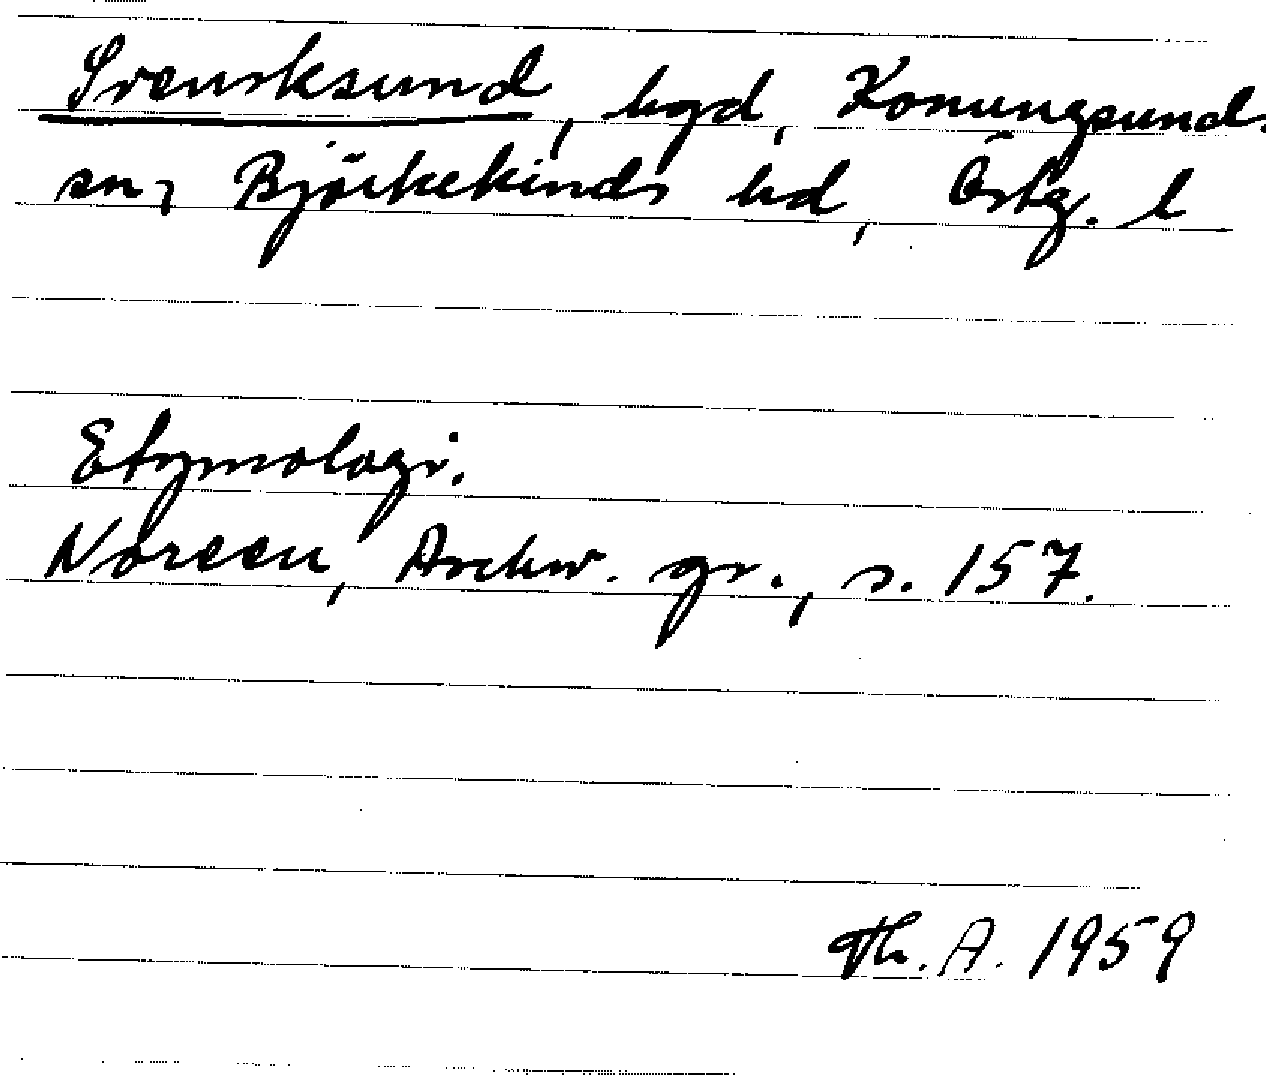 Svensksund, hgd, Konungsund.
sn, Björkekinds hd, Östg. l
Etymologi.
Noreen, Archiv. gr., s. 157.
Th. A. 1959